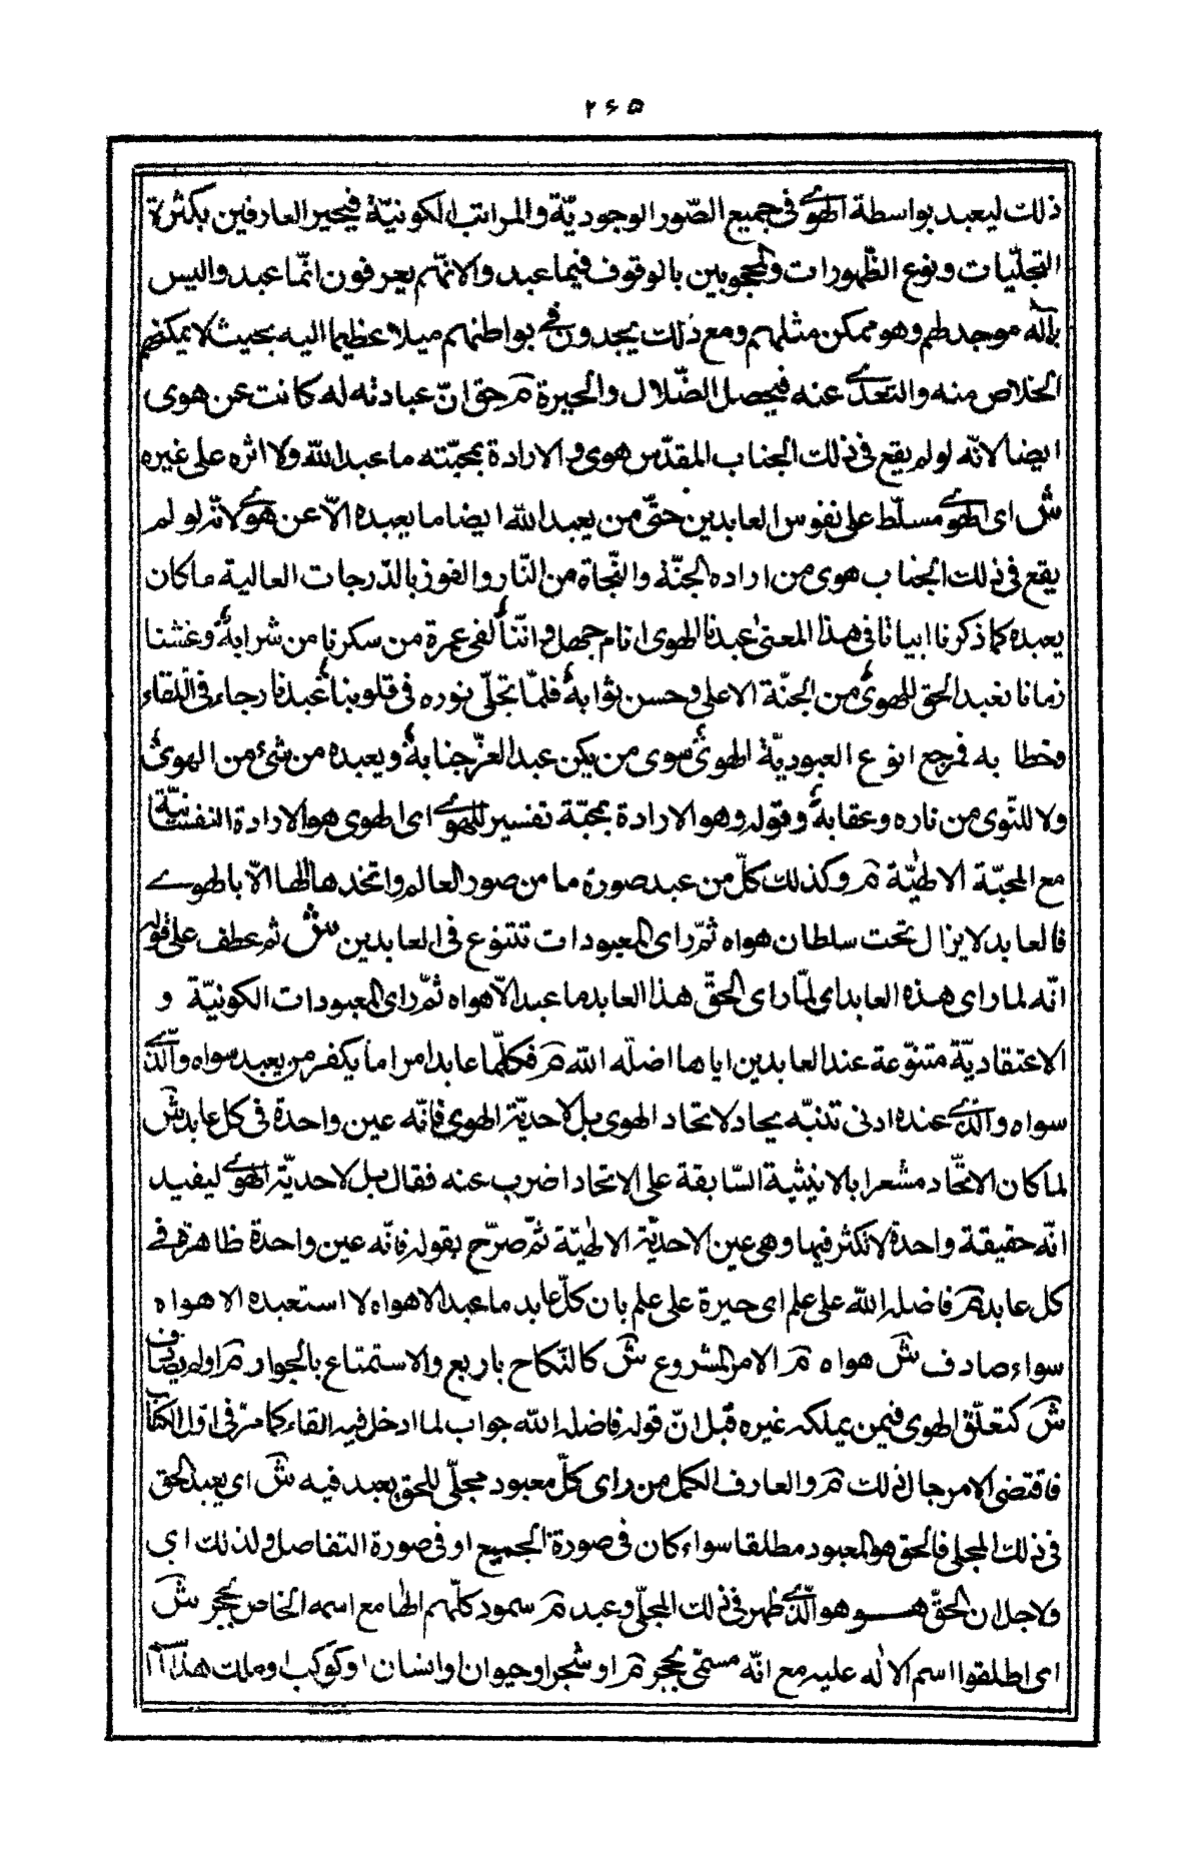 ٢۶۵
ذلك ليعبد بواسطة الهوى فى جميع الصّور الوجوديّة والمراتب الكونيّة فيحير العارفين بكثرة
التجلّيات وبنوع الظّهورات والمحجوبين بالوقوف فيما عبد والانّهم يعرفون انّما عبدوا ليس
بآله موجد لهم وهو ممكن مثلهم ومع ذلك يجدون فى بواطنهم ميلا عظيما اليه بحيث لا يمكنهم
الخلاص منه والتعدّى عنه فيحصل الضّلال والحيرة م حق انّ عبادته له كانت عن هوى
ايضا لانّه لو لم يقع فى ذلك الجناب المقدّس هوى و الارادة بمحبّته ما عبد الله ولا اثره على غيره
ش اى الهوى مسلّط على نفوس العابدين حتّى من يعبد الله ايضا ما يعبده الاّ عن هوى لانّه لو لم
يقع فى ذلك الجناب هوى من اراده الجنّة والنّجاة من النّار والفوز بالدّرجات العالية ما كان
يعبده كما ذكرنا ابياتا فى هذا المعنى عبدنا الهوى ايام جهل واننّا لفى غمرة من سكرنا من شرابه وعشنا
زمانا نعبد الحق للهوى من الجنّة الاعلى وحسن ثوابه فلمّا تجلّى نوره فى قلوبنا عبدنا رجاء فى اللّقاء
وخطابه فرجع انوع العبوديّة الهوى سوى من يكن عبد العز جنابه ويعبده من شئ من الهوى
ولا للنّوى من ناره وعقابه وقوله وهو الارادة بمحبّة تفسير للهوى اى الهوى هو الارادة النفسانيّة
مع المحبّة الالهٰيّة م وكذلك كلّ من عبد صورة ما من صور العالم واتخذها الها الاّ بالهوى
فالعابد لا يزال تحت سلطان هواه ثمّ راى المعبودات تتنوع فى العابدين ش ثم عطف على قوله
انّه لما راى هذه العابد اى لمّا راى الحقّ هذا العابد ما عبد الاّ هواه ثمّ راى المعبودات الكونيّة و
الاعتقاديّة متنوّعة عند العابدين اياها اضلّه الله م فكلّما عابد امر اما يكفر من يعبد سواه والّذى
سواه والذى عنده ادنى تنبّه يحاد لاتحاد الهوى بل لاحديّة الهوى فانّه عين واحدة فى كل عابد ش
لما كان الاتّحاد مشعرا بالاثنيثية السّابقة على الاتحاد اضرب عنه فقال بل لاحديّة الهوى ليفيد
انّه حقيقة واحدة لا تكثر فيها وهى عين الاحديّة الالهٰيّة ثمّ صرّح بقوله فانّه عين واحدة ظاهرة فى
كل عابد م فاضله الله على علم اى حيرة على علم بان كلّ عابد ما عبد الا هواه لا استعبده الا هواه
سواء صادف ش هواه م الامر المشروع ش كالنّكاح باربع والاستمتاع بالجوار م او له يصادف
ش كتعلّق الهوى فيمن يملكه غيره قبل انّ قوله فاضله الله جواب لما ادخل فيه القاء كما مرّ فى اوّل الكتاب
فاقتضى الامر جال ذلك م والعارف الكمل من راى كلّ معبود مجلّى للحق يعبد فيه ش اى يعبد الحق
فى ذلك المجلى فالحق هو المعبود مطلقا سواء كان فى صورة الجميع او فى صورة التفاصل ولذلك اى
ولاجل ان الحقّ هو هو الّذى ظهر فى ذلك المجلّى وعبد م سمود كلّهم الها مع اسمه الخاص بحجر ش
اى اطلقوا اسم الالٰه عليه مع انّه مسمّى بحجر م او شجر او حيوان او انسان او كوكب او ملك هذا